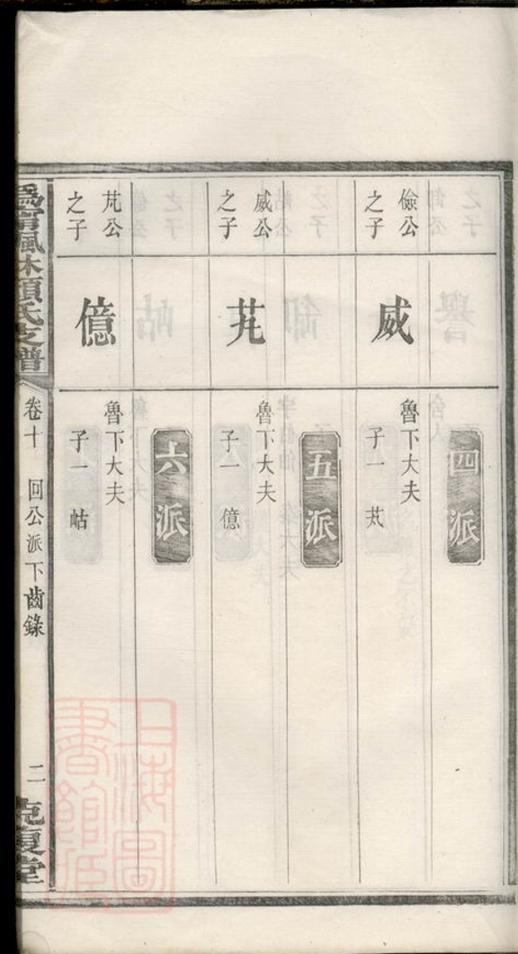 四派
儉公
之子
威
魯下大夫
子一 芃
五派
威公
之子
芃
魯下大夫
子一 億
六派
芃公
之子
億
魯下大夫
子一 岵
楓林顏氏支譜
卷十 回公派下齒錄
二
克復堂
上海圖
書館藏